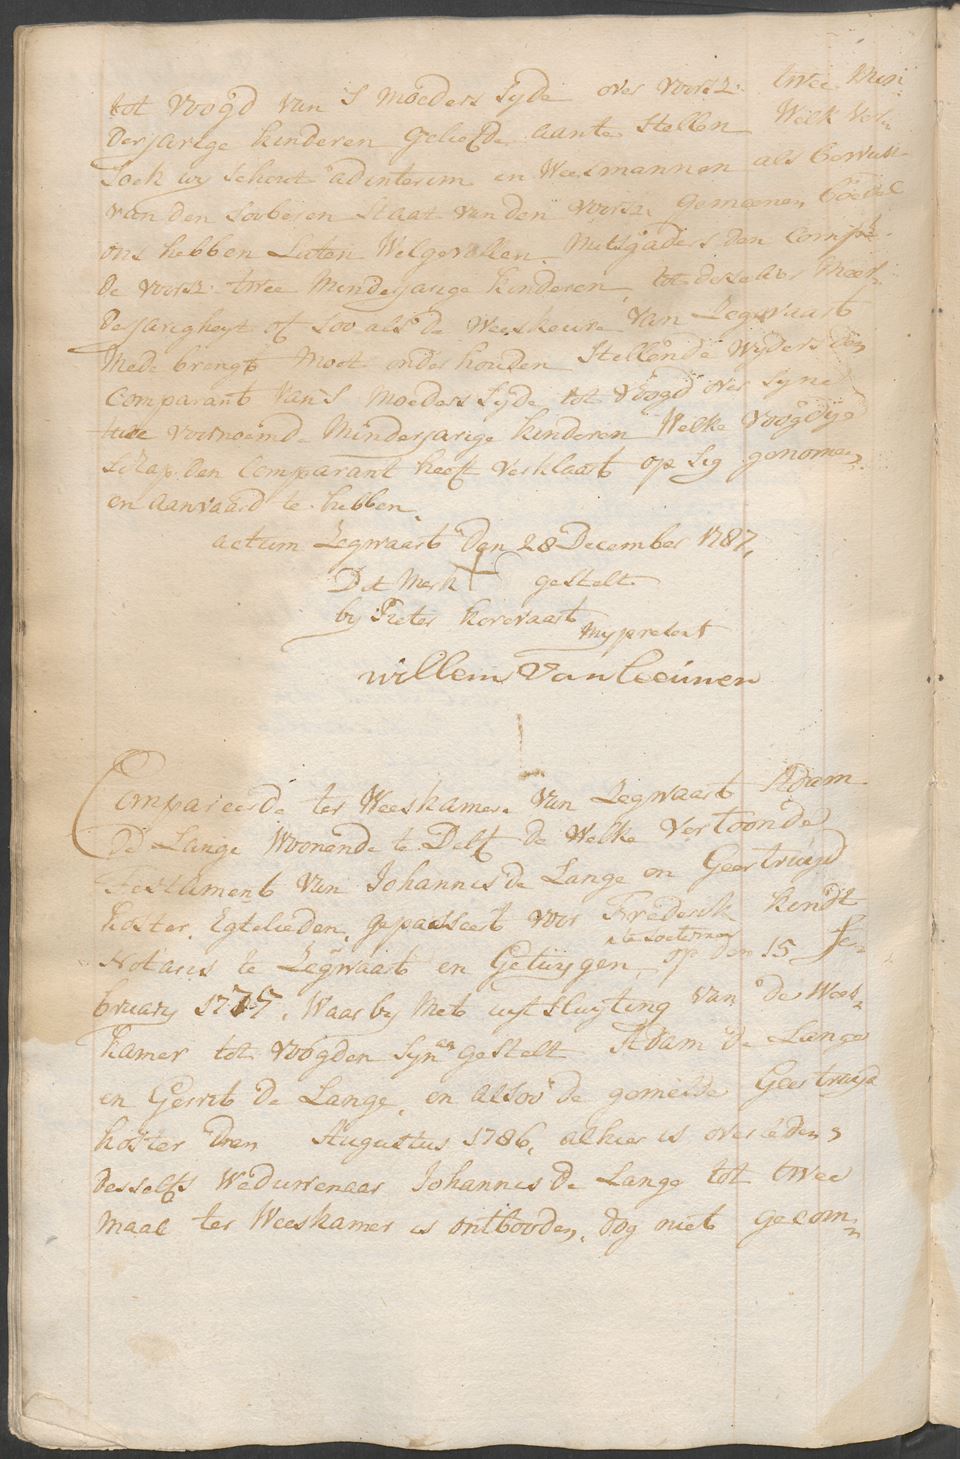 tot voogd van S moeders syde over voorsz: twee min
derjarige kinderen geliefde aante stellen Welk Ver-
soek wy Schout adinterim en Weesmannen als bewust
van den soberen staat van den voorsz. gemeenen boedel
ons hebben Laten Welgevallen. Mitsgaders den Compt.
de voorsz: twee minderjarige kinderen, tot derselver meer-
derjarigheyt of soo als de Weeskeure van Zegwaart
mede brengt moet onderhouden stellende wyders den
Comparant van S moeders syde tot voogd over syne
twee voornoemde minderjarige kinderen Welke voogdye
schap den Comparant heeft verklaart op sig genomen,
en aanvaard te hebben,
actum Zegwaart den 28 December 1787,
Dit merk + gestelt
by Pieter Korevaart
my present
willem van Leeuwen
Compareerde ter Weeskamer van Zegwaart Adam
de Lange woonende te Delft de welke vertoonde
Testament van Johannis de Lange en Geertruyd
koster, Egtelieden, gepasseert voor Frederik kindt
te Soetermeer
Notaris te Zegwaart en Getuygen, op den 15 Fe-
bruary 1777, waar by met uyt sluyting van de Wees-
kamer tot voogden syn gestelt Adam de Lange
en Gerrit de Lange, en alsoo de gemelde Geertruyd
koster den Augustus 1786, alhier is overleden,
desselfs Weduwenaar Johannis de Lange tot twee
maal ter Weeskamer is ontbooden, dog niet gecom-